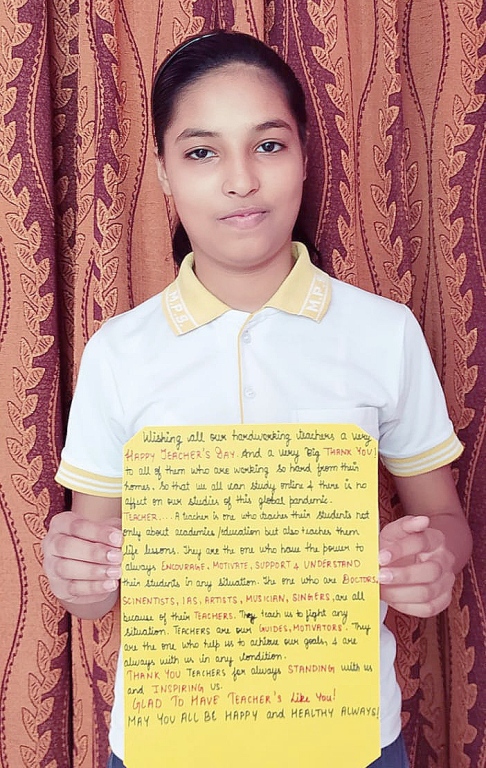 M.P.S.
M.P.S
Wishing all our hardworking teachers a very
HAPPY TEACHER'S DAY. And a very Big THANK YOU!
to all of them who are working so hard from their
homes. So that we all can study online & there is no
affect on our studies of this global pandemic.
TEACHER.... A teacher is one who teaches their students not
only about academics/education but also teaches them
life lessons. They are the one who have the power to
always ENCOURAGE, MOTIVATE, SUPPORT & UNDERSTAND
their students in any situation. The one who are DOCTORS,
SCINENTISTS, IAS, ARTISTS, MUSICIAN, SINGERS, are all
because of their TEACHERS. They teach us to fight any
situation. TEACHERS are our GUIDES, MOTIVATORS. They
are the one who help us to achieve our goals, & are
always with us in any condition.
THANK YOU TEACHERS for always STANDING with us
and INSPIRING us.
GLAD TO HAVE TEACHER's Like You!
MAY YOU ALL BE HAPPY and HEALTHY ALWAYS!